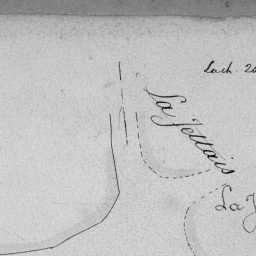 Lach. 20
La Jettais
La J